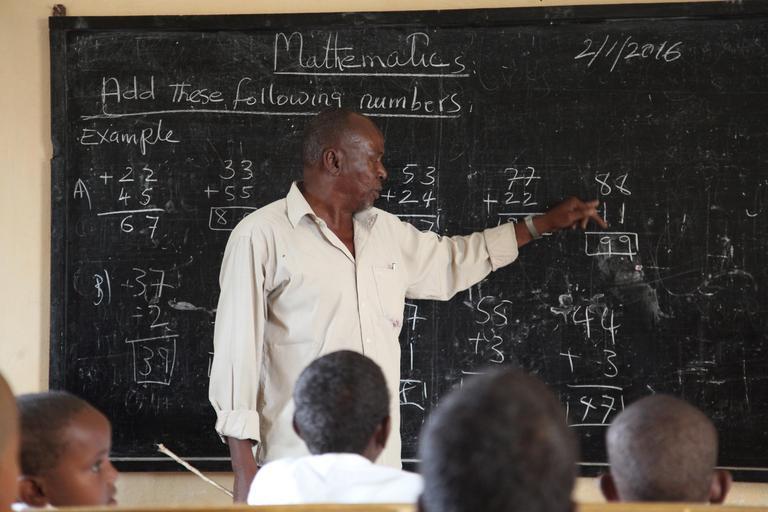 Mathematics 2/1/2016
Add These following numbers
Example
A) +22 33 53 77 88
45 +55 +24 +22 11
67 8 99
B) 37 55 44
2 +3 + 3
39 47